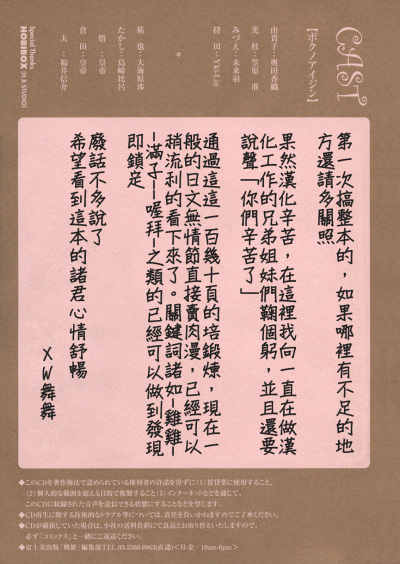 CAST
【ボクノアイジン】
由貴子：奥田香織
光枝：笠原准
みづえ：未来羽
持田：Yki-Lin
＊
祐也：大海原渉
たかし：島崎比呂
悟：皇帝
倉田：皇帝
夫：福井信介
Special Thanks
HOBIBOX [H.B.STUDIO]
第一次搞整本的，如果哪裡有不足的地
方還請多關照
果然漢化辛苦，在這裡找向一直在做漢
化工作的兄弟姐妹們鞠個躬，並且還要
說聲「你們辛苦了」
通過這這一百幾十頁的培鍛煉，現在一
般的日文無情節直接賣肉漫，已經可以
稍流利的看下來了。關鍵詞諸如–雞雞–
–滿子––喔拜–之類的已經可以做到發現
即鎖定
廢話不多說了
希望看到這本的諸君心情舒暢
XW舞舞
◆このCDを著作権法で認められている権利者の許諾を得ずに（1）賃貸業に使用すること、
（2）個人的な範囲を超える目的で複製すること（3）インターネットなどを通じて、
このCDに収録された音声を送信できる状態にすることなどを禁じます。
◆CD再生に関する技術的なトラブル等については、責任を負いかねますのでご了承ください。
◆CDが破損していた場合は、小社の送料負担にて良品とお取り替えいたしますので、
必ず「コミックス」と一緒にご返送ください。
◆富士美出版「桃姫」編集部TEL.03-5360-8963（直通）＜月-金／10am-6pm＞